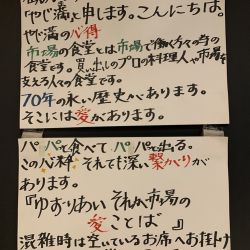 「やじ満」と申します。こんにちは。
やじ満の心得
市場の食堂とは市場で働く方々の為の
食堂です。買い出しのプロの料理人や市場を
支える人々の食堂です。
70年の永い歴史があります。
そこには愛があります。
パッと食べてパパッと出る。
この心粋 それでも深い繋がりが
あります。
『ゆずりあい それが市場の
愛ことば』
混雑時は空いているお席へお掛け